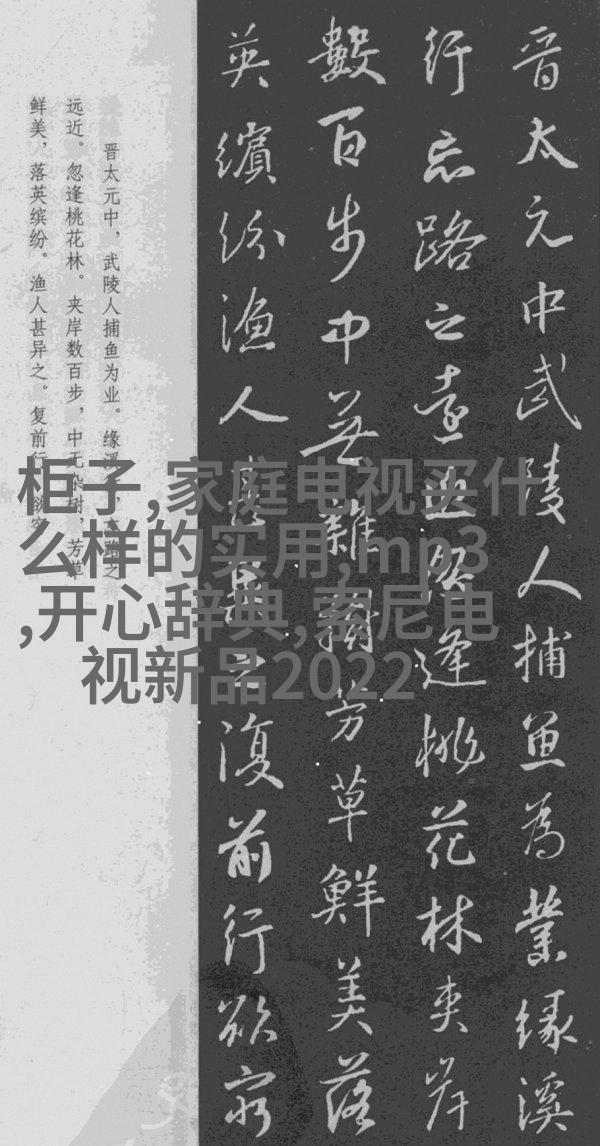 晋太元中武陵人捕鱼为業缘溪
行忘路之遠忽逢桃花林夹岸
數百步中无雜樹芳草鮮美落
英缤纷渔人甚異之復前行欲窮
晋太元中，武陵人捕鱼为业。缘溪
远近。忽逢桃花林。夹岸数百步，中无杂树，芳草
鲜美，落英缤纷。渔人甚异之。复前行
柜子,家庭电视买什
么样的实用,mp3
,开心辞典,索尼电
视新品2022